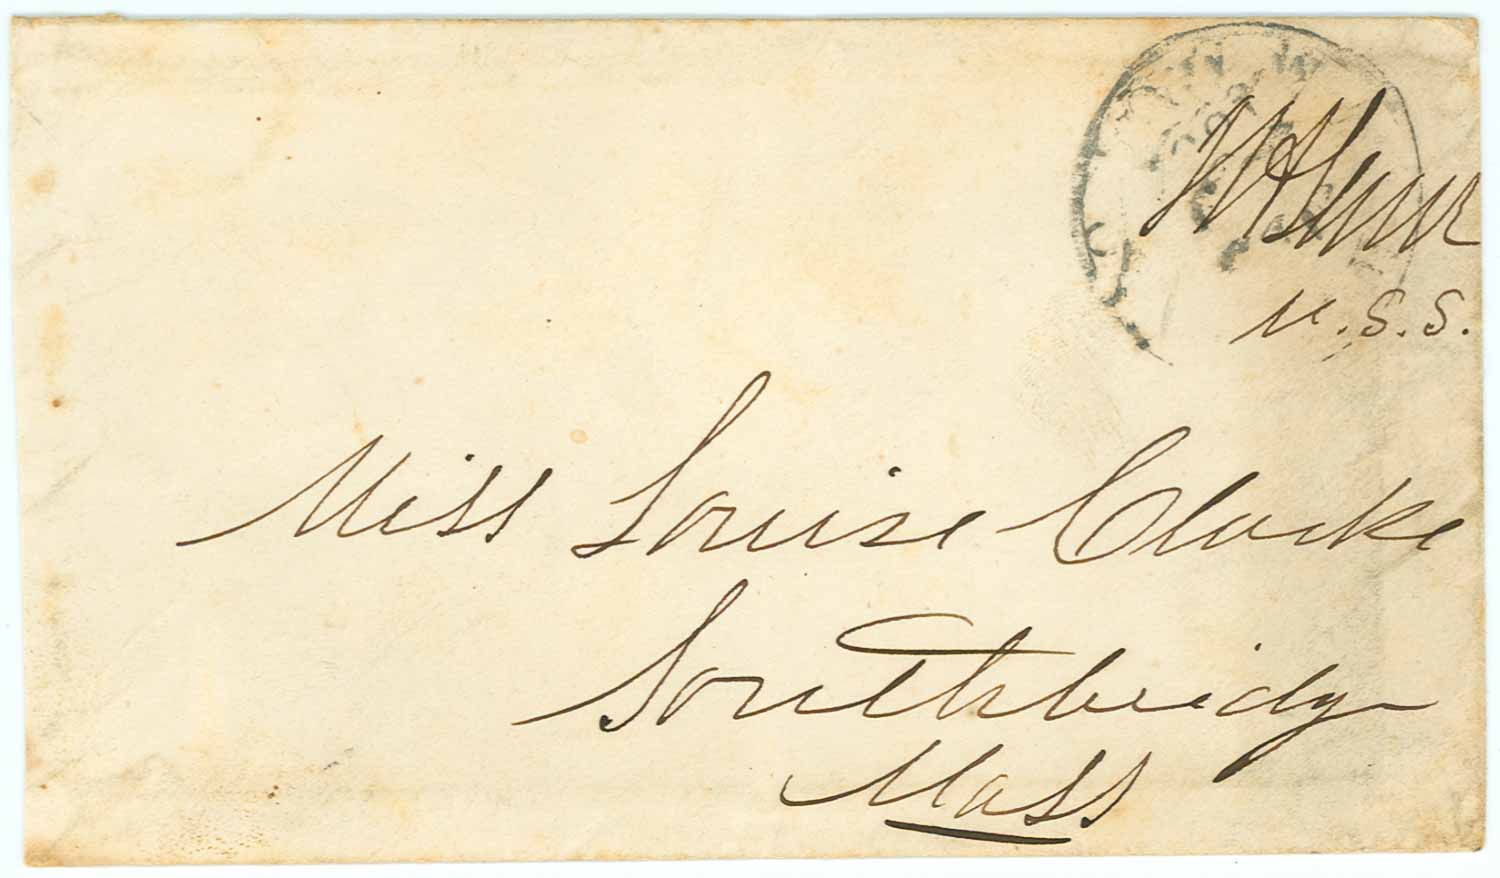 WHSeward
U.S.S.
Miss Louise Clarke
Southbridge
Mass